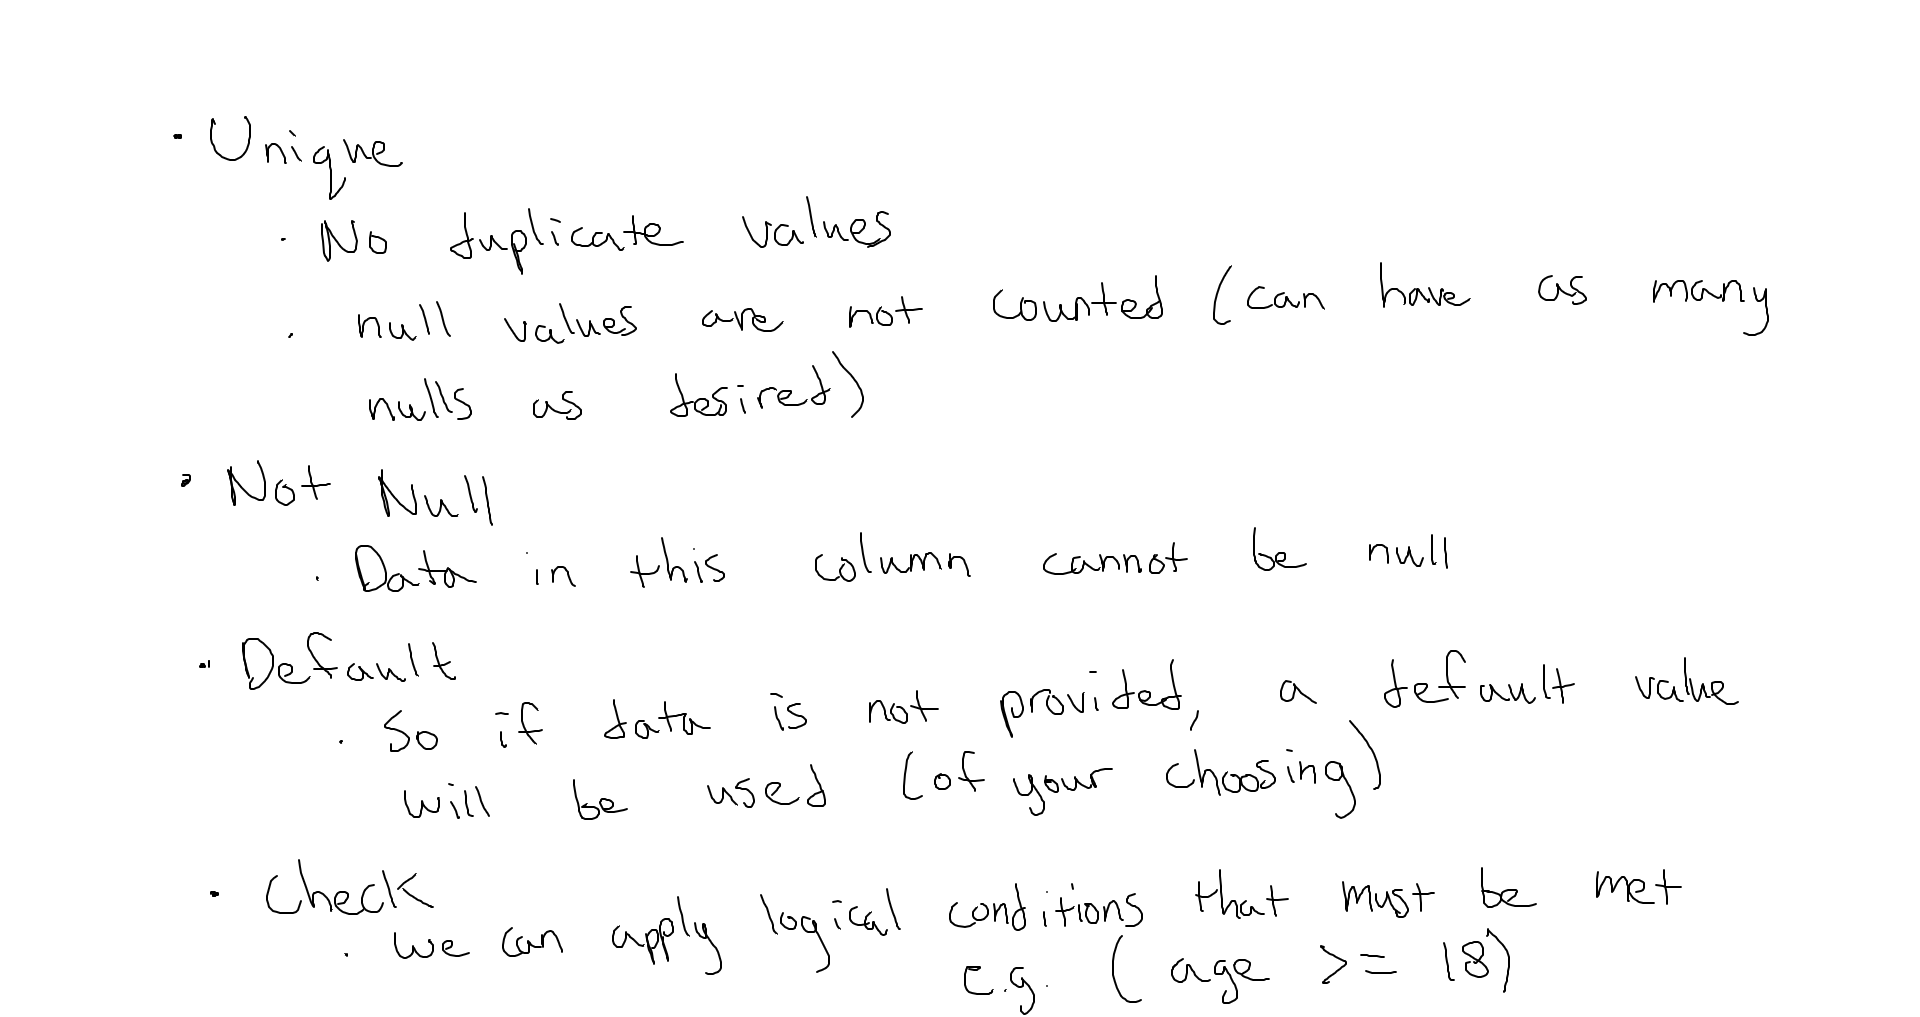 · Unique
· No duplicate values
· null values are not counted (can have as many
nulls as desired)
· Not Null
· Data in this column cannot be null
· Default
· So if data is not provided, a default value
will be used (of your choosing)
· Check
· we can apply logical conditions that must be met
e.g. (age >= 18)